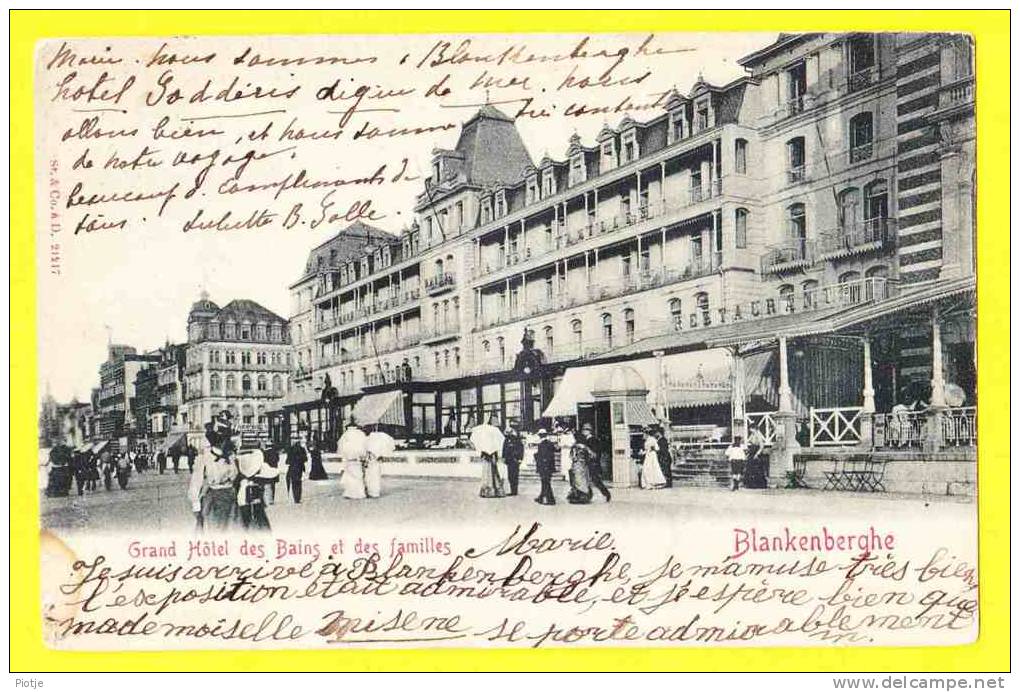 Marie. nous sommes à Blankenberghe
hotel Godderis digue de mer. nous
allons bien, et nous sommes très contents
de notre voyage
beaucoup de compliments de
tous. Juliette B. Golle.
St. & Co. à D. 21417
RESTAURANT
Grand Hôtel des Bains et des familles
Blankenberghe
Marie
Je suis arrivé à Blankenberghe, je m'amuse très bien
l'exposition était admirable, et j'éspère bien que
mademoiselle Misère se porte admirablement
Piotje
http://www.delcampe.net